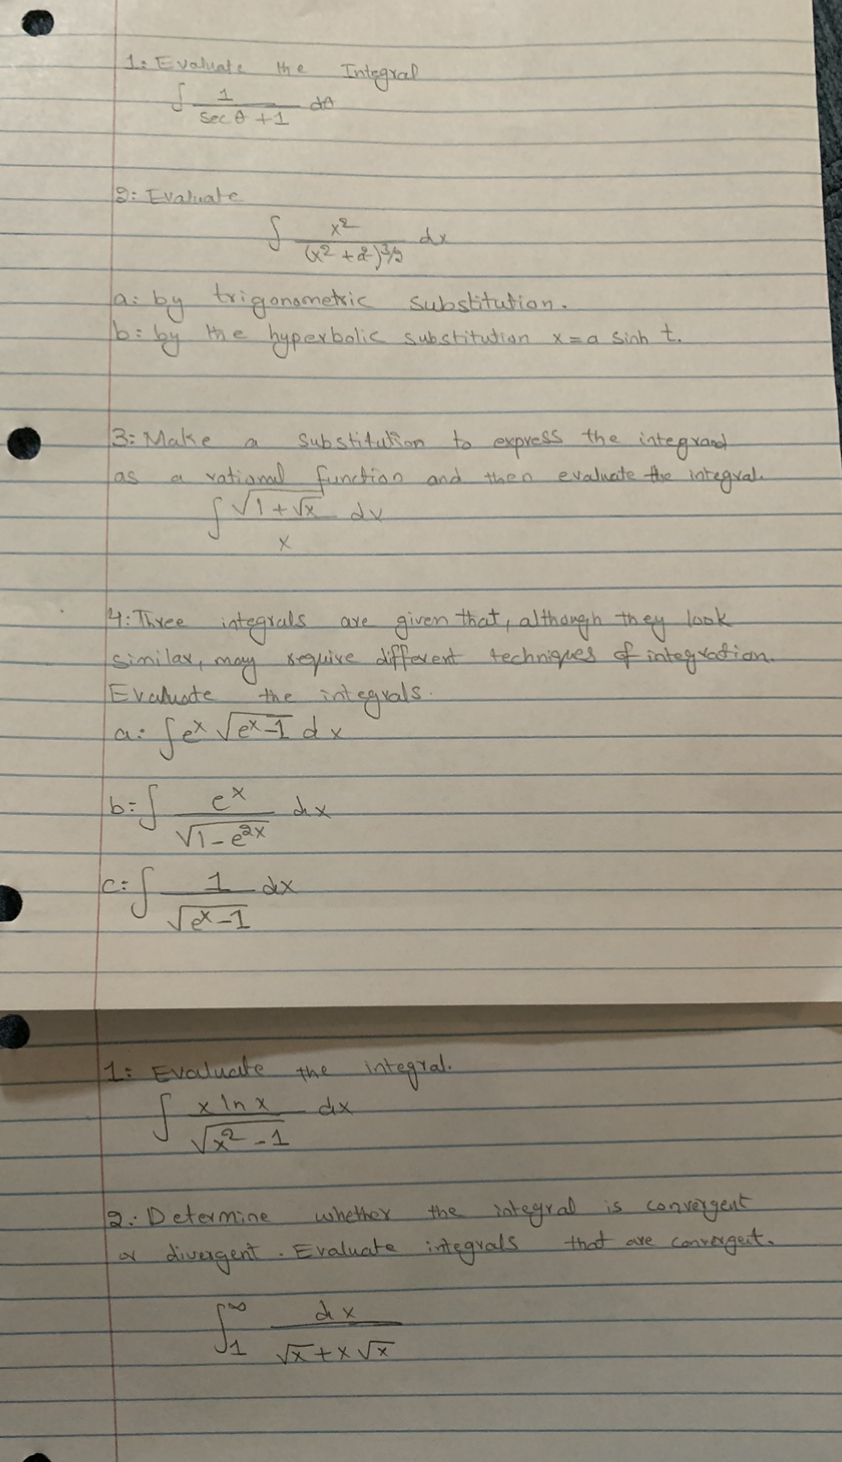 1: Evaluate the Integral
∫ 1/(sec θ + 1) dθ
2: Evaluate
∫ x²/(x² + 2)^(3/2) dx
a: by trigonometric substitution.
b: by the hyperbolic substitution x = a sinh t.
3: Make a substitution to express the integrand
as a rational function and then evaluate the integral.
∫ √(1 + √x)/x dx
4: Three integrals are given that, although they look
similar, may require different techniques of integration.
Evaluate the integrals.
a: ∫ eˣ √(eˣ - 1) dx
b: ∫ eˣ/√(1 - e²ˣ) dx
c: ∫ 1/√(eˣ - 1) dx
1: Evaluate the integral.
∫ x ln x/√(x² - 1) dx
2: Determine whether the integral is convergent
or divergent. Evaluate integrals that are convergent.
∫₁^∞ dx/(√x + x√x)